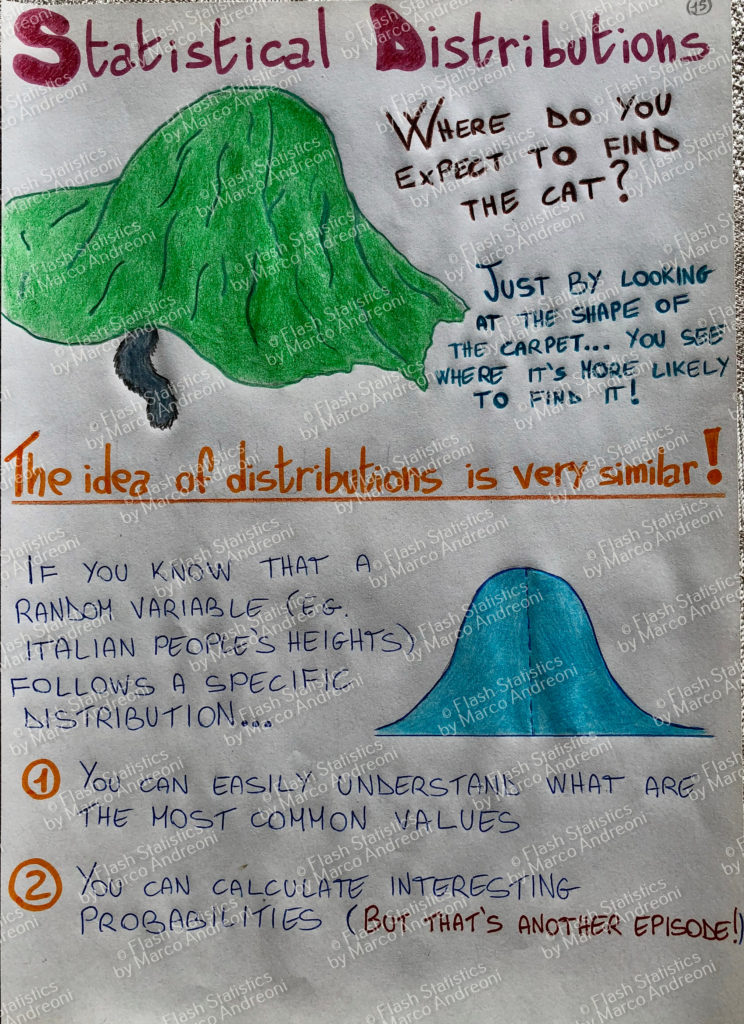 Statistical Distributions
15
WHERE DO YOU
EXPECT TO FIND
THE CAT?
JUST BY LOOKING
AT THE SHAPE OF
THE CARPET... YOU SEE
WHERE IT'S MORE LIKELY
TO FIND IT!
The idea of distributions is very similar!
IF YOU KNOW THAT A
RANDOM VARIABLE (EG.
ITALIAN PEOPLE'S HEIGHTS)
FOLLOWS A SPECIFIC
DISTRIBUTION...
1 YOU CAN EASILY UNDERSTAND WHAT ARE
THE MOST COMMON VALUES
2 YOU CAN CALCULATE INTERESTING
PROBABILITIES (BUT THAT'S ANOTHER EPISODE!)
© Flash Statistics
by Marco Andreoni